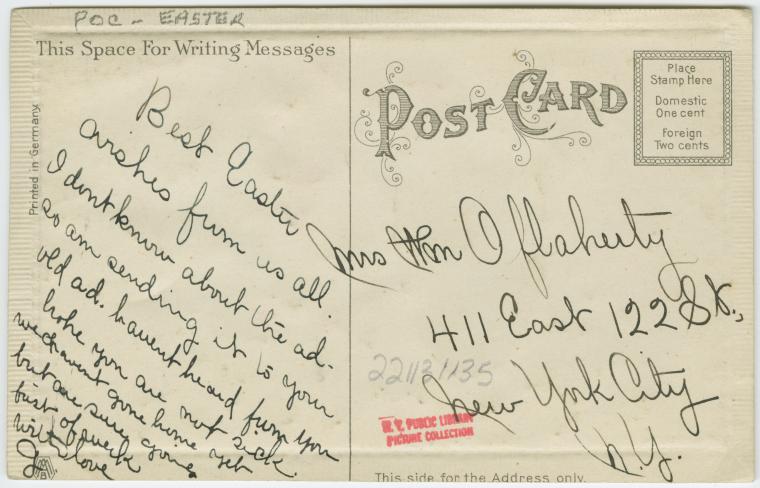 POC - EASTER
This Space For Writing Messages
Printed in Germany.
Best Easter
wishes from us all.
I dont know about the ad-
so am sending it to your
old ad. havent heard from you
hope you are not sick.
we havent gone home yet
but are sure going
first of week
with love
POST CARD
Place
Stamp Here
Domestic
One cent
Foreign
Two cents
Mrs Wm Oflaherty
411 East 122 St.,
New York City
N.Y.
221131135
N. Y. PUBLIC LIBRARY
PICTURE COLLECTION
This side for the Address only.